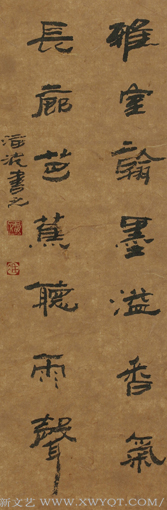 雅室翰墨溢香氣
長廊芭蕉聽雨聲
新文艺 · WWW.XWYOT.COM/